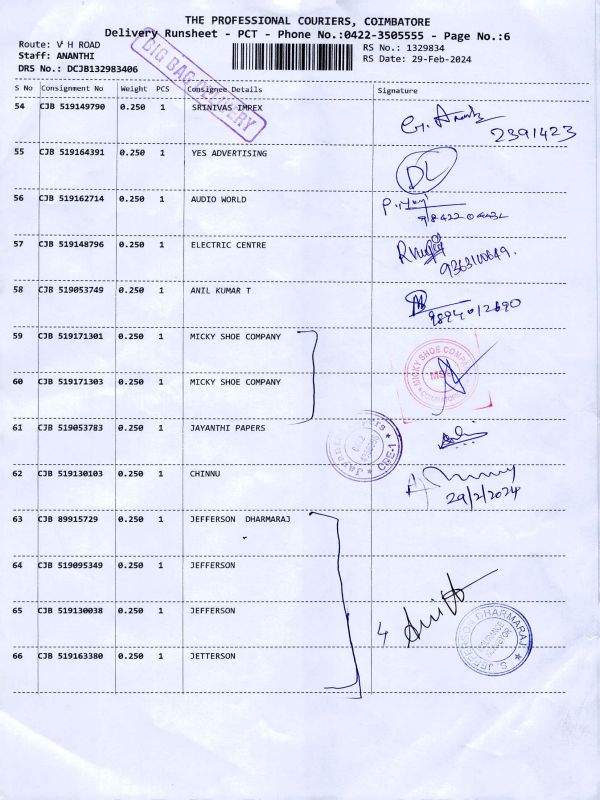 THE PROFESSIONAL COURIERS, COIMBATORE
Delivery Runsheet - PCT - Phone No.:0422-3505555 - Page No.:6
Route: V H ROAD
RS No.: 1329834
Staff: ANANTHI
RS Date: 29-Feb-2024
DRS No.: DCJB132983406
BIG BAG DELIVERY
S No Consignment No Weight PCS Consignee Details Signature
54 CJB 519149790 0.250 1 SRINIVAS IMREX
2391423
55 CJB 519164391 0.250 1 YES ADVERTISING
DL
56 CJB 519162714 0.250 1 AUDIO WORLD
57 CJB 519148796 0.250 1 ELECTRIC CENTRE
9363100649.
58 CJB 519053749 0.250 1 ANIL KUMAR T
9894012690
59 CJB 519171301 0.250 1 MICKY SHOE COMPANY
MICKY SHOE COMPANY
60 CJB 519171303 0.250 1 MICKY SHOE COMPANY
61 CJB 519053783 0.250 1 JAYANTHI PAPERS
CBE-1
62 CJB 519130103 0.250 1 CHINNU
29/2/2024
63 CJB 89915729 0.250 1 JEFFERSON DHARMARAJ
64 CJB 519095349 0.250 1 JEFFERSON
65 CJB 519130038 0.250 1 JEFFERSON
4
S. JEFFERSON DHARMARAJ
66 CJB 519163380 0.250 1 JETTERSON